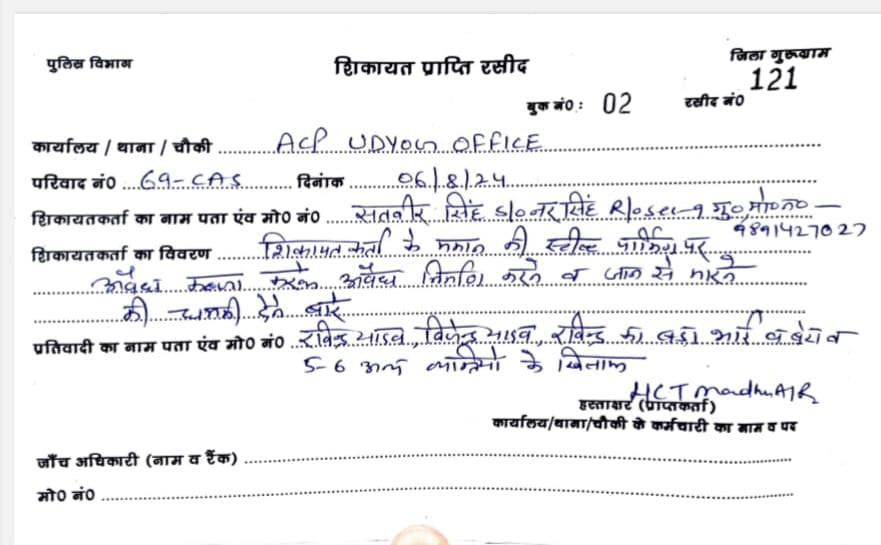 पुलिस विभाग
शिकायत प्राप्ति रसीद
जिला गुरूग्राम
बुक नं० : 02
रसीद नं० 121
कार्यालय / थाना / चौकी ACP UDYOG OFFICE
परिवाद नं० 69-CAS दिनांक 06/8/24
शिकायतकर्ता का नाम पता एंव मो० नं० सतबीर सिंह S/o नर सिंह R/o Sec-9 गु०, मो० न० —
9891427027
शिकायतकर्ता का विवरण शिकायत कर्ता के मकान की स्टील्ट पार्किंग पर
अवैध कब्जा करके अवैध निर्माण करने व जान से मारने
की धमकी देने बारे
प्रतिवादी का नाम पता एंव मो० नं० रविन्द्र यादव, विजेन्द्र यादव, रविन्द्र का बडा भाई व बेटा व
5-6 अन्य व्यक्तियो के खिलाफ
HCT
हस्ताक्षर (प्राप्तकर्ता)
कार्यालय/थाना/चौकी के कर्मचारी का नाम व पद
जाँच अधिकारी (नाम व रैंक)
मो० नं०